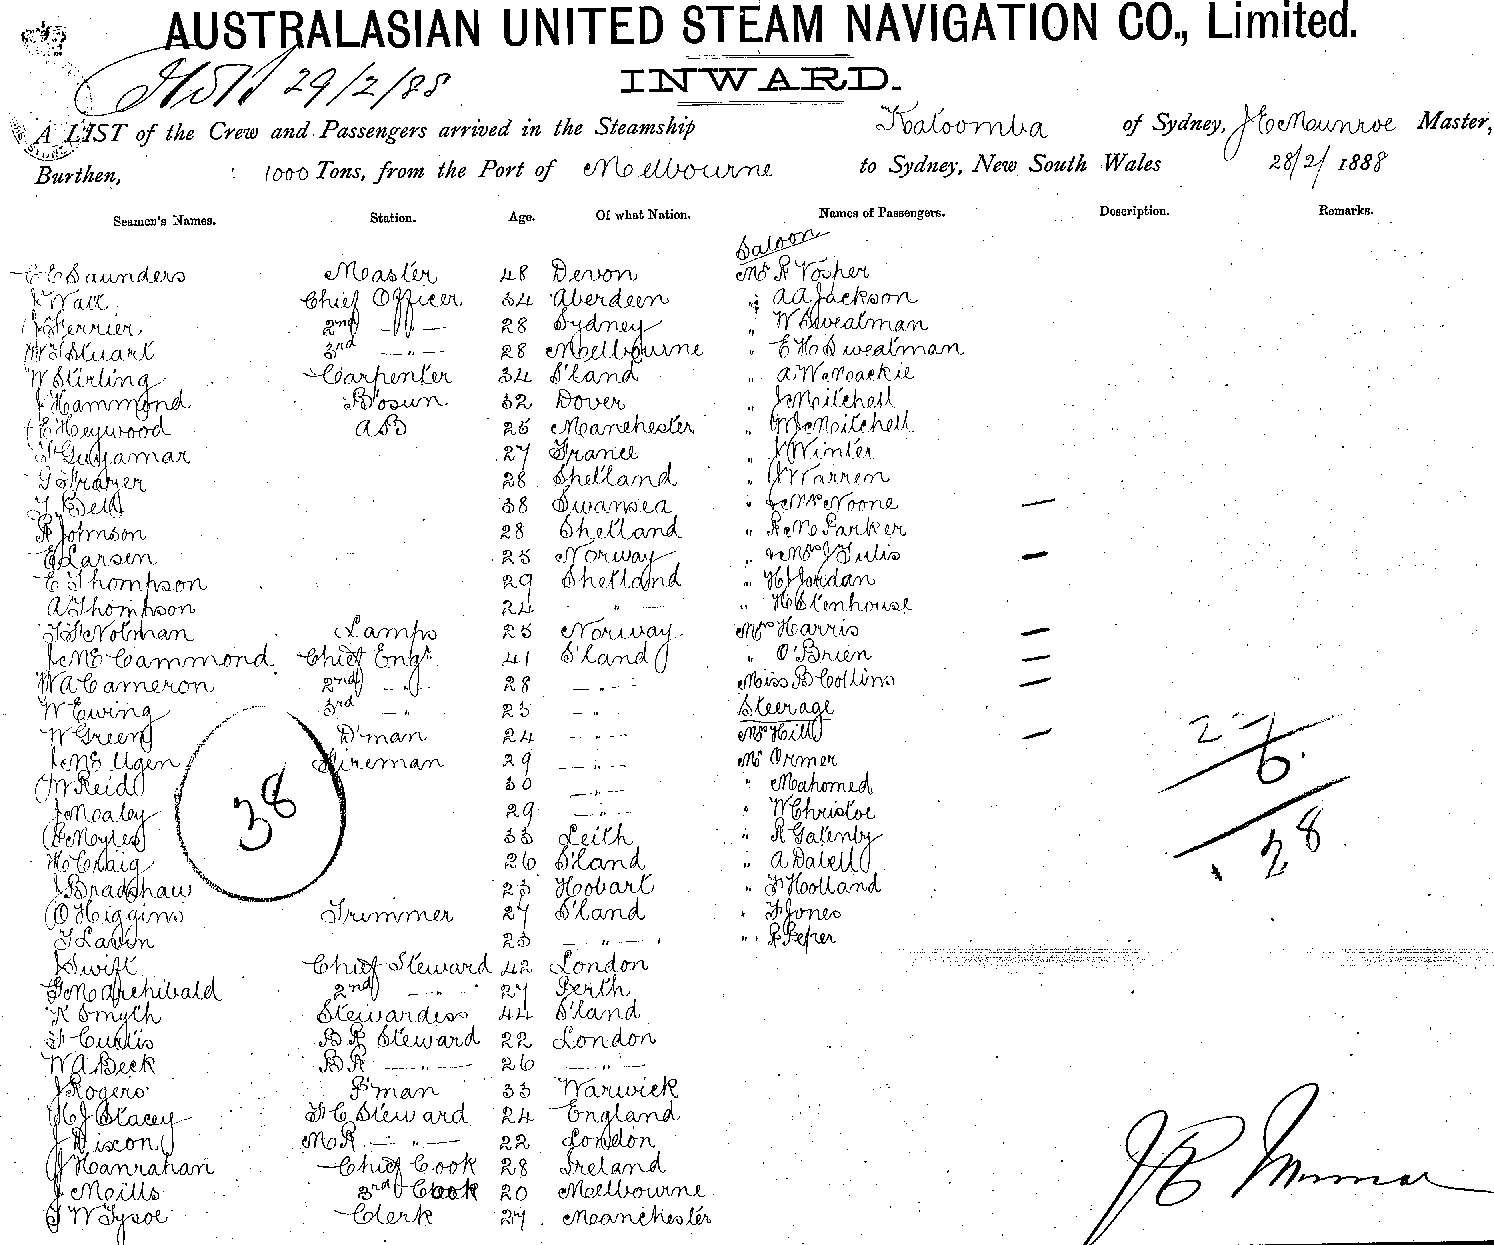 AUSTRALASIAN UNITED STEAM NAVIGATION CO., Limited.
29/2/88
INWARD.
A LIST of the Crew and Passengers arrived in the Steamship Katoomba of Sydney, J E Munroe Master,
Burthen, 1000 Tons, from the Port of Melbourne to Sydney, New South Wales 28/2/1888
Seamen's Names. Station. Age. Of what Nation. Names of Passengers. Description. Remarks.
Saloon
E E Saunders Master 48 Devon Mr R Vosper
J Watt Chief Officer 34 Aberdeen " A A Jackson
J Ferrier 2nd - " - 28 Sydney " W Swealman
W S Stuart 3rd - " - 28 Melbourne " E H Swealman
W Stirling Carpenter 34 S'land " A W Mackie
J Hammond Bosun 32 Dover " J Mitchell
E Heywood AB 25 Manchester " W J Mitchell
F Guyamar 27 France " J Winter
G Frazer 28 Shetland " J Warren
T Bell 38 Swansea " & Mrs Noone —
R Johnson 28 Shetland " R M Parker
E Larsen 25 Norway " & Mrs J Tulis —
E Thompson 29 Shetland " H J Jordan
A Thompson 24 - " - " H Stenhouse
Nolman Lamps 25 Norway Mrs Harris —
J McCammond Chief Engr 41 S'land " O'Brien —
W A Cameron 2nd - " 28 - " - Miss B Collins —
W Ewing 3rd - " 25 - " Steerage
W Green D'man 24 - " - Mrs Hill —
J McUgen Fireman 29 - " - Mr Ormer
W Reid 30 - " - " Mahomed
J Mealey 29 - " - " W Christoe
C Myles 33 Leith " R Gatenby
H Craig 26 S'land " A Dalell
J Bradshaw 23 Hobart " F Holland
O Higgins Trimmer 27 S'land " F Jones
T Lavin 23 - " - " R Peper
J Swift Chief Steward 42 London
G M Archibald 2nd - " 27 Perth
K Smyth Stewardess 44 S'land
F Curtis B R Steward 22 London
W A Beck B R - " - 26 - " -
J Rogers P'man 33 Warwick
H J Stacey F C Steward 24 England
J Dixon M R - " - 22 London
J Hanrahan Chief Cook 28 Ireland
J Mills 3rd Cook 20 Melbourne
J W Tysoe Clerk 27 Manchester
38
6
28